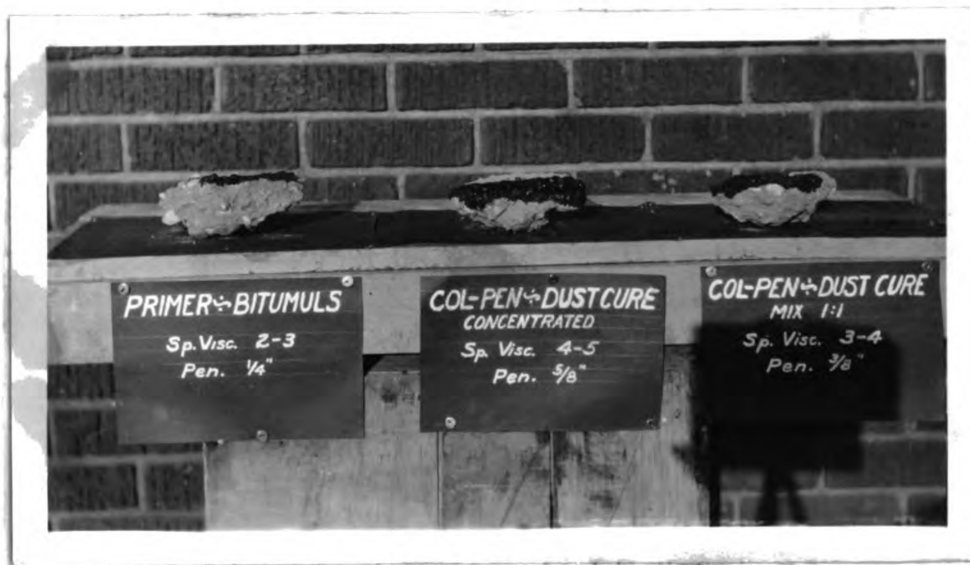 PRIMER÷BITUMULS
Sp. Visc. 2-3
Pen. 1/4"
COL-PEN÷DUST CURE
CONCENTRATED
Sp. Visc. 4-5
Pen. 5/8"
COL-PEN÷DUST CURE
MIX 1:1
Sp. Visc. 3-4
Pen. 3/8"